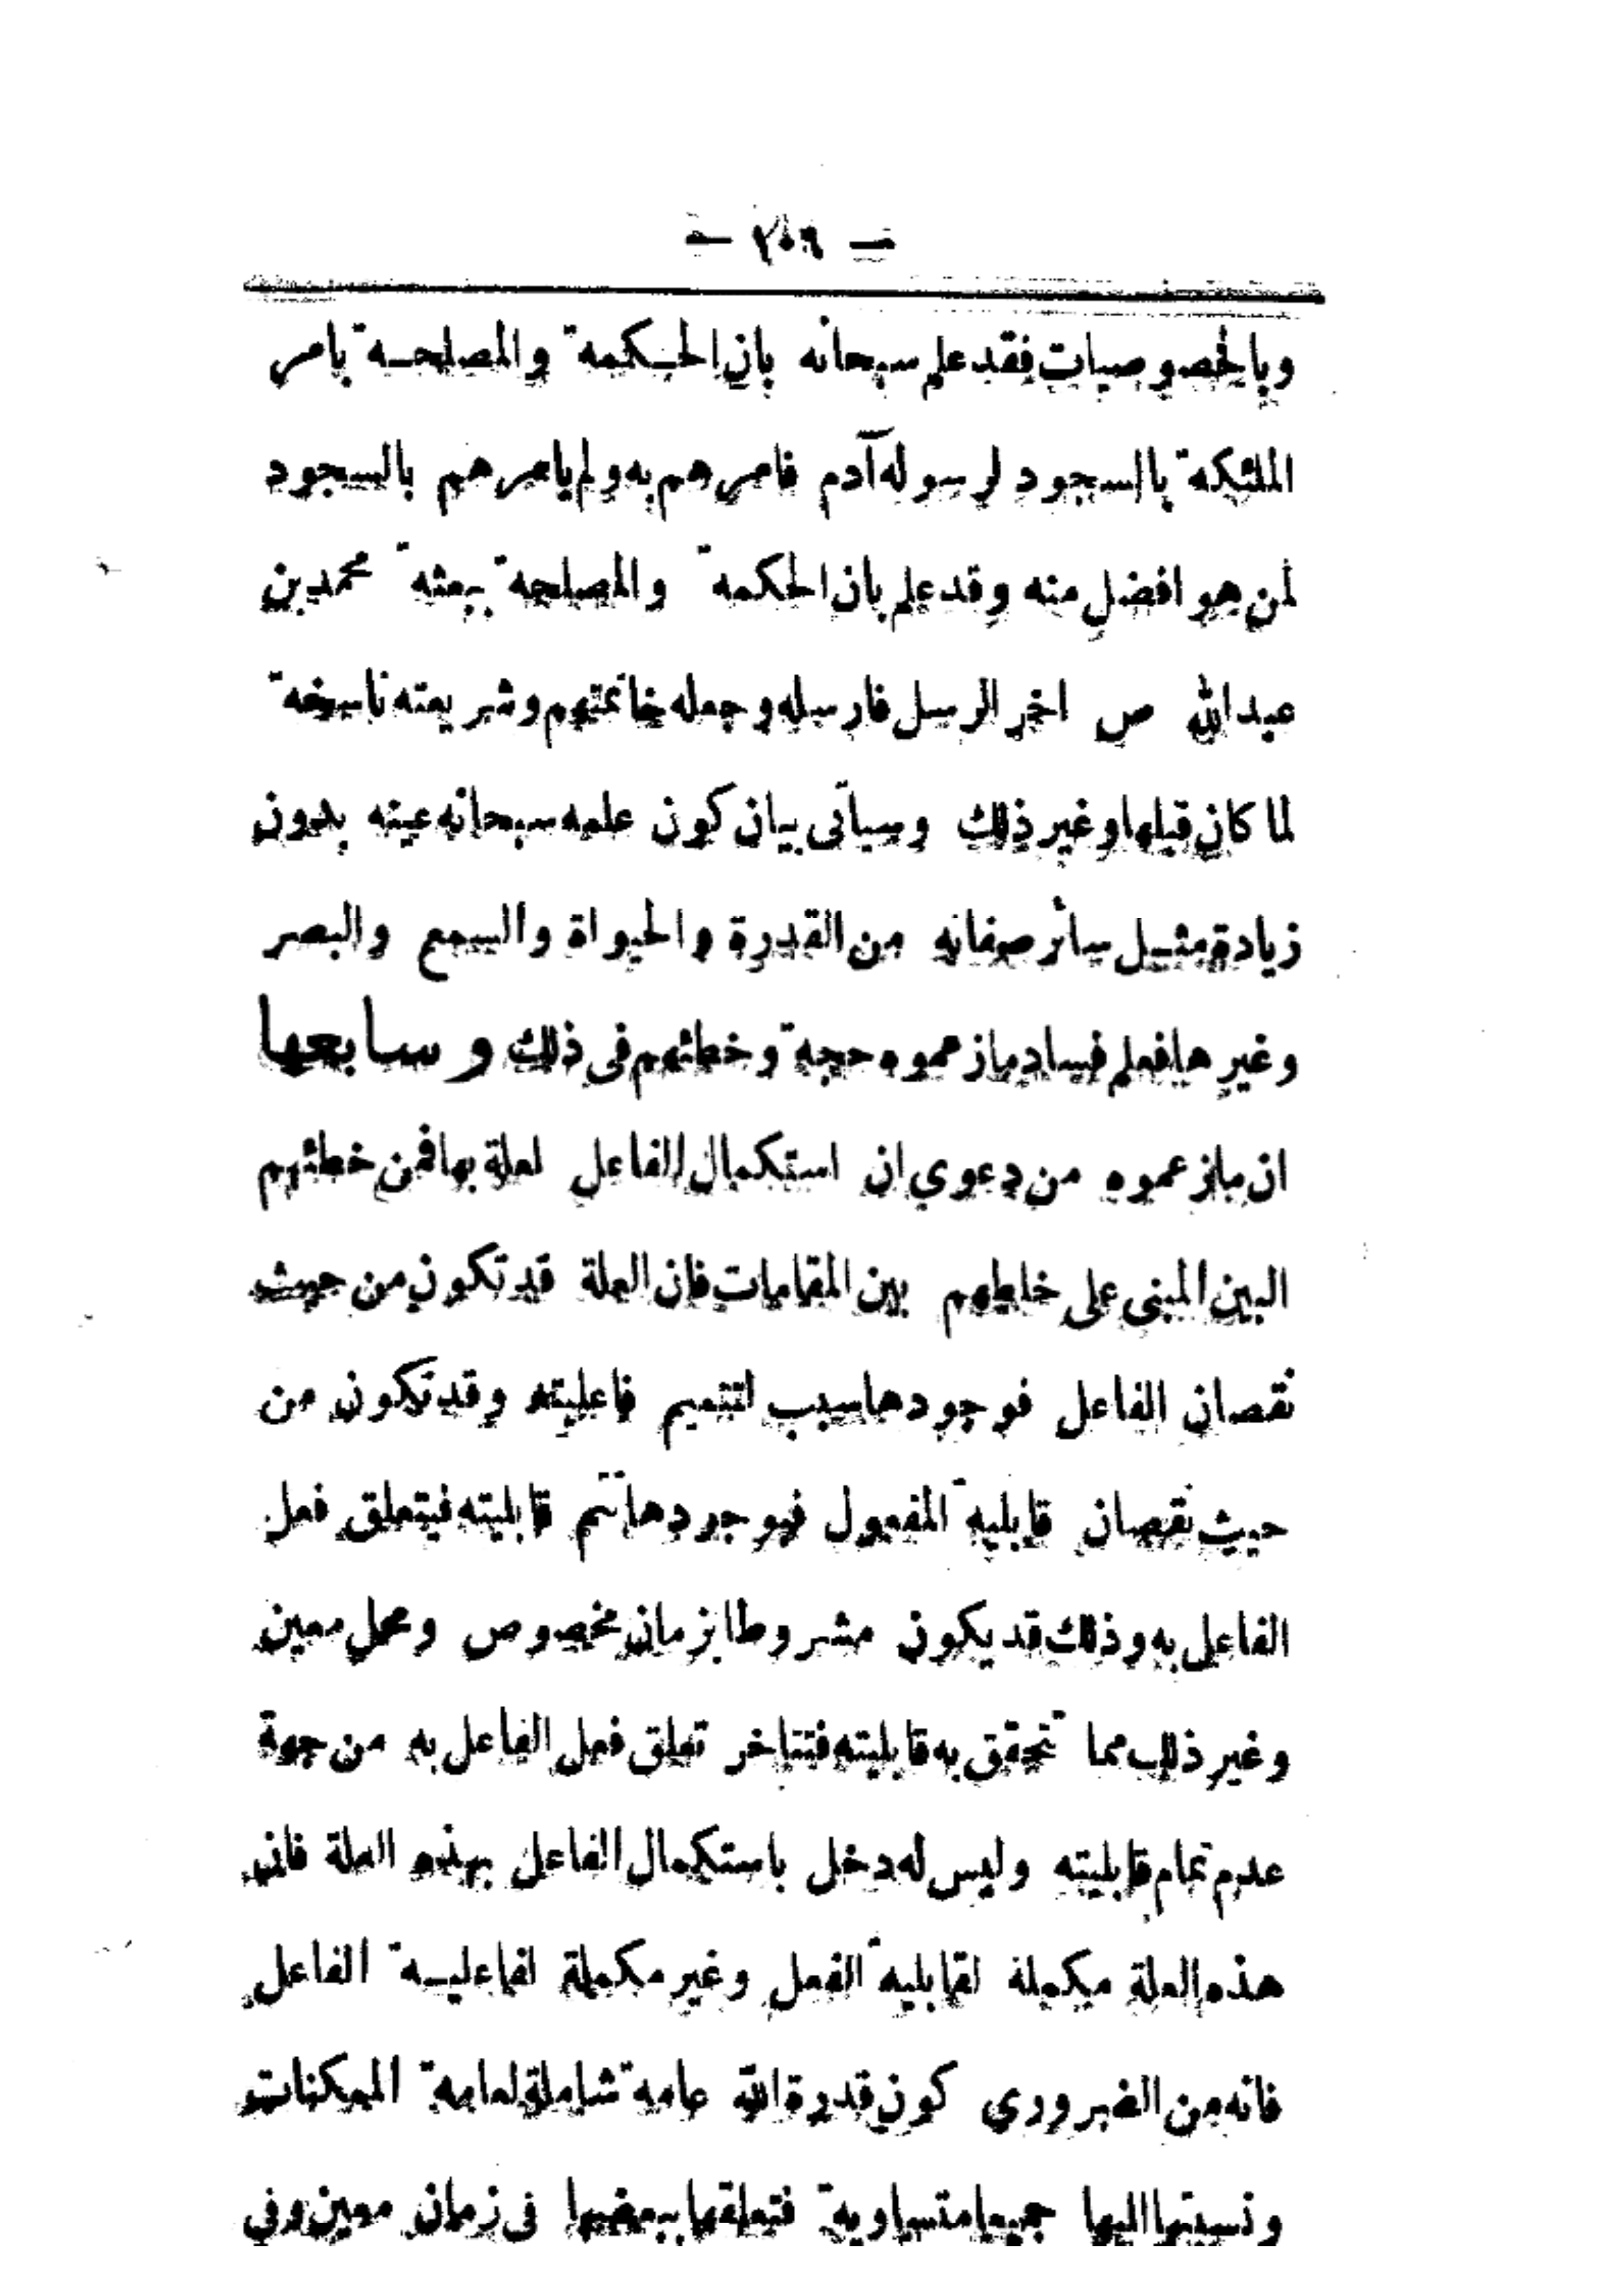 — ٢٥٦ —
وبالخصوصيات فقد علم سبحانه بان الحكمة والمصلحة بامر
الملئكة بالسجود لرسوله آدم فامرهم به ولم يامرهم بالسجود
لمن هو افضل منه وقد علم بان الحكمة والمصلحة ببعثة محمد بن
عبدالله ص اخر الرسل فارسله وجعله خاتمتهم وشريعته ناسخة
لما كان قبلها وغير ذلك وسيأتى بيان كون علمه سبحانه عينه بدون
زيادة مثل سائر صفاته من القدرة والحيواة والسمع والبصر
وغيرها فعلم فساد ما زعموه حجة وخطائهم فى ذلك وسابعها
ان ما زعموه من دعوي ان استكمال الفاعل لعلة بها فمن خطائهم
البين المبنى على خلطهم بين المقامات فان العلة قد تكون من حيث
نقصان الفاعل فوجودها سبب لتتميم فاعليته وقد تكون من
حيث نقصان قابلية المفعول فبوجودها تتم قابليته فيتعلق فعل
الفاعل به وذلك قد يكون مشروطا بزمان مخصوص ومحل معين
وغير ذلك مما تحقق به قابليته فتتاخر تعلق فعل الفاعل به من جهة
عدم تمام قابليته وليس له دخل باستكمال الفاعل بهذه العلة فان
هذه العلة مكملة لقابلية الفعل وغير مكملة لفاعلية الفاعل
فانه من الضروري كون قدرة الله عامة شاملة لعامة الممكنات
ونسبتها اليها جميعا متساوية فتعلقها ببعضها فى زمان معين وفي